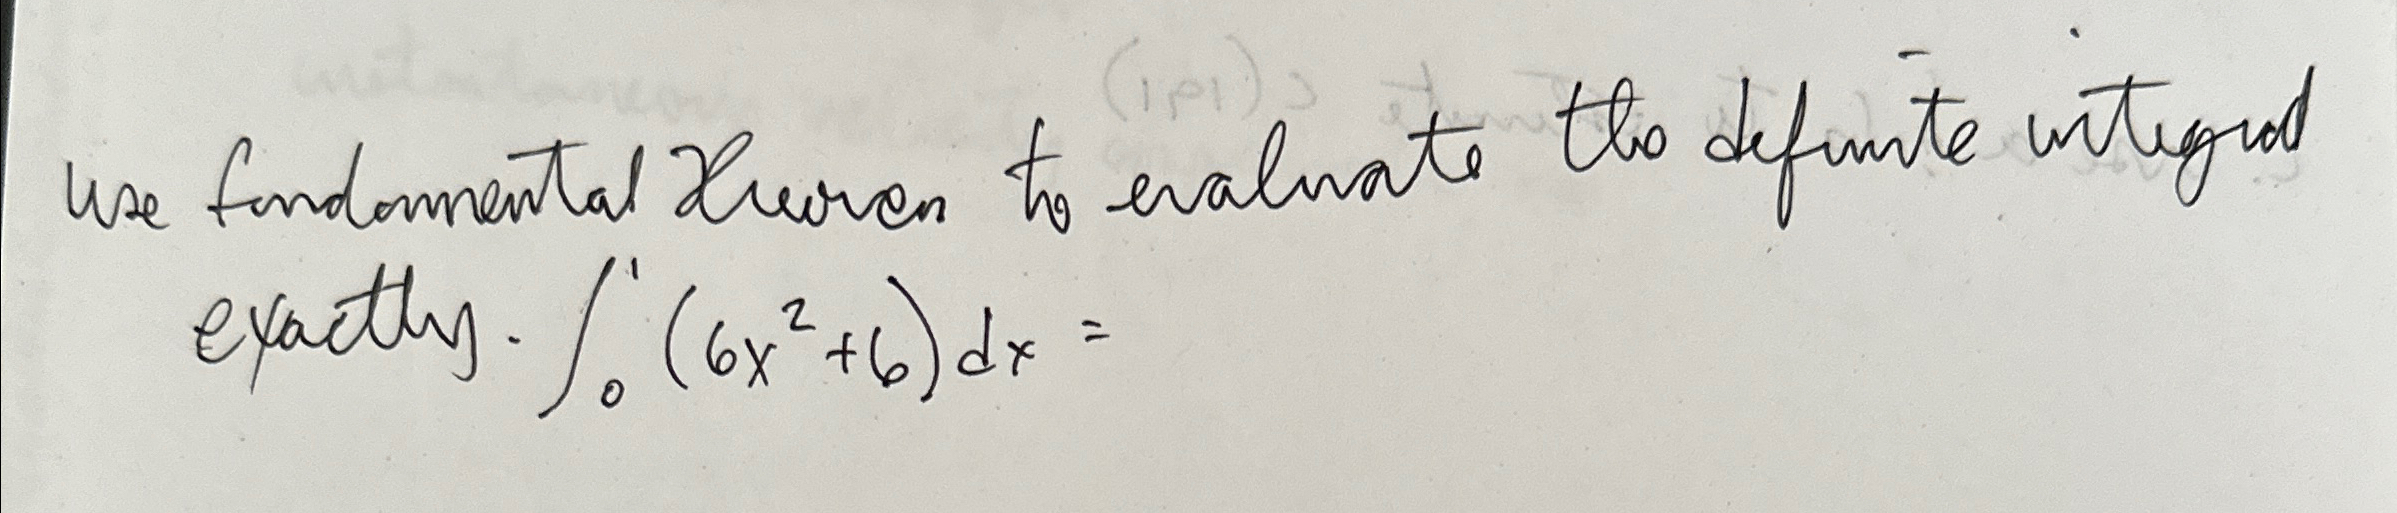 use fundamental theorem to evaluate the definite integral
exactly. ∫₀¹ (6x² + 6) dx =